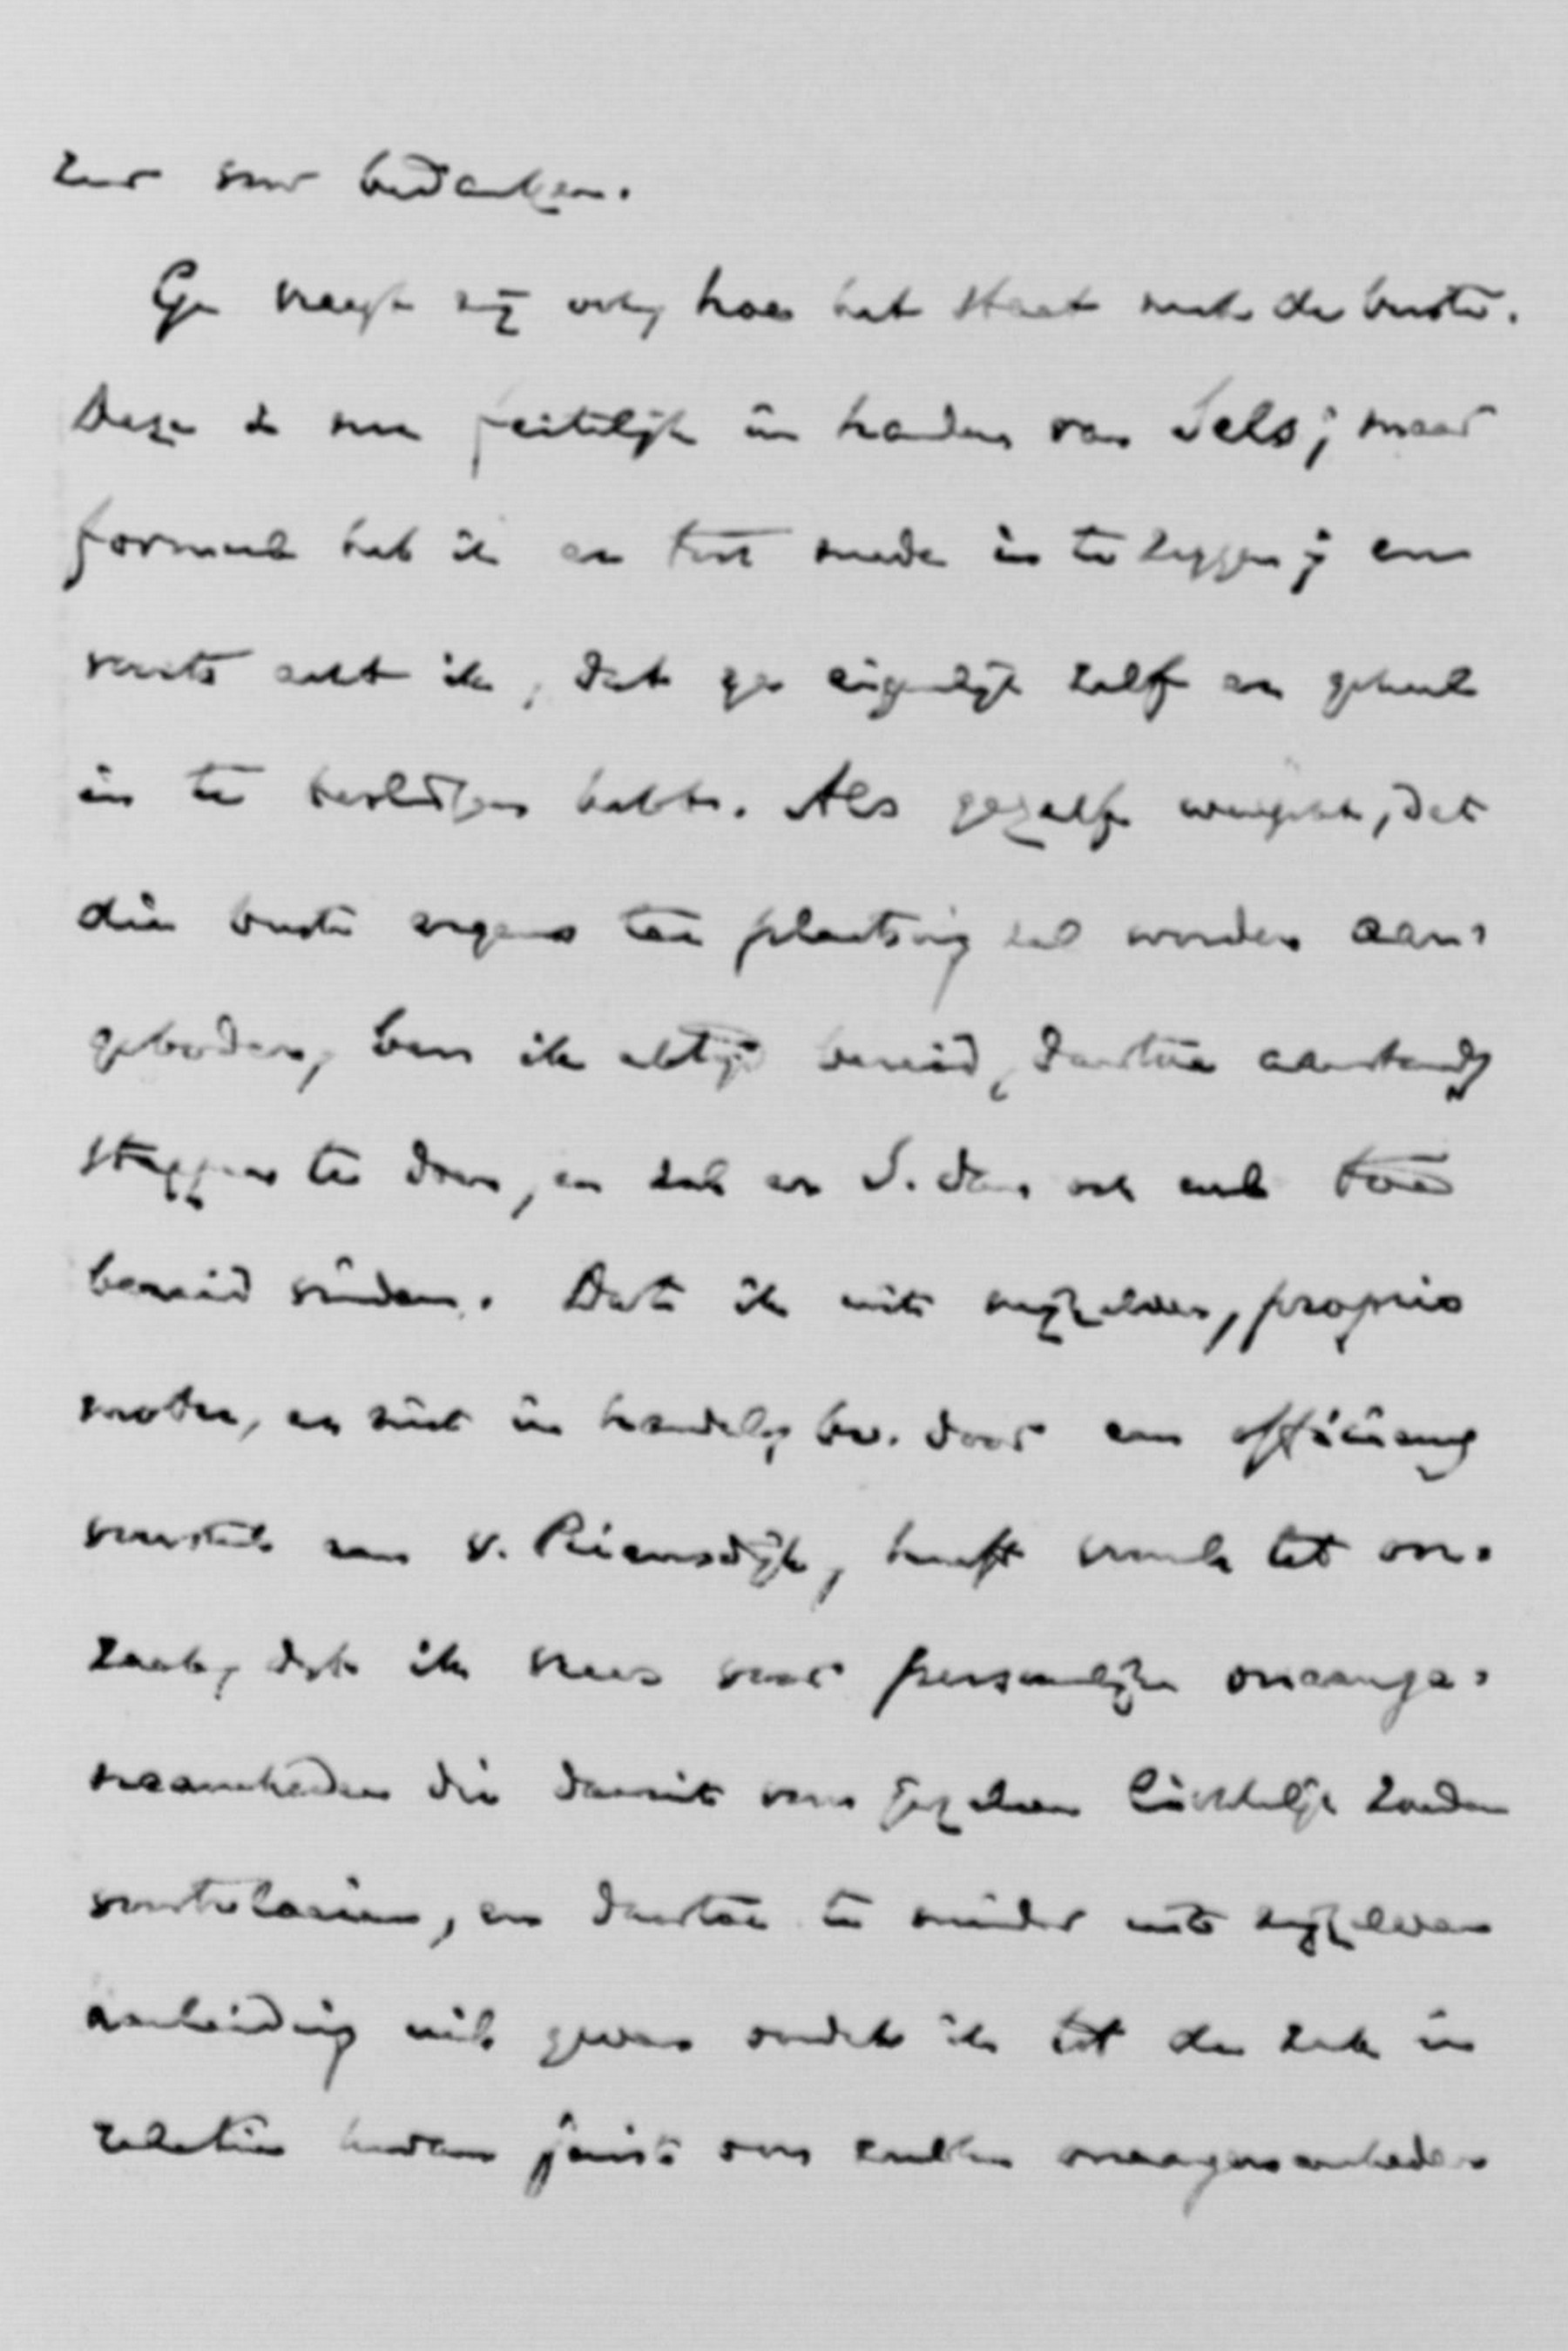 zeer voor bedanken.
Ge vraagt mij ook, hoe het staat met de buste.
Deze is nu feitelijk in handen van Sels; maar
formeel heb ik er toch mede in te zeggen; en
voorts acht ik, dat ge eigenlijk zelf er geheel
in te beslissen hebt. Als ge zelf wenscht, dat
die buste ergens ter plaatsing zal worden aan-
geboden, ben ik altijd bereid, daartoe aanstonds
stappen te doen, en zal er S. dan ook wel toe
bereid vinden. Dat ik uit mijzelven, proprio
motu, er niet in handel, bv. door een officieus
voorstel aan v. Riemsdijk, heeft vooral tot oor-
zaak, dat ik vrees voor persoonlijke onaange-
naamheden die daaruit voor Uzelven lichtelijk zouden
voortvloeien, en daartoe te minder uit mijzelven
aanleiding wil geven omdat ik tot de zaak in
relatie juist van zulke onaangenaamheden